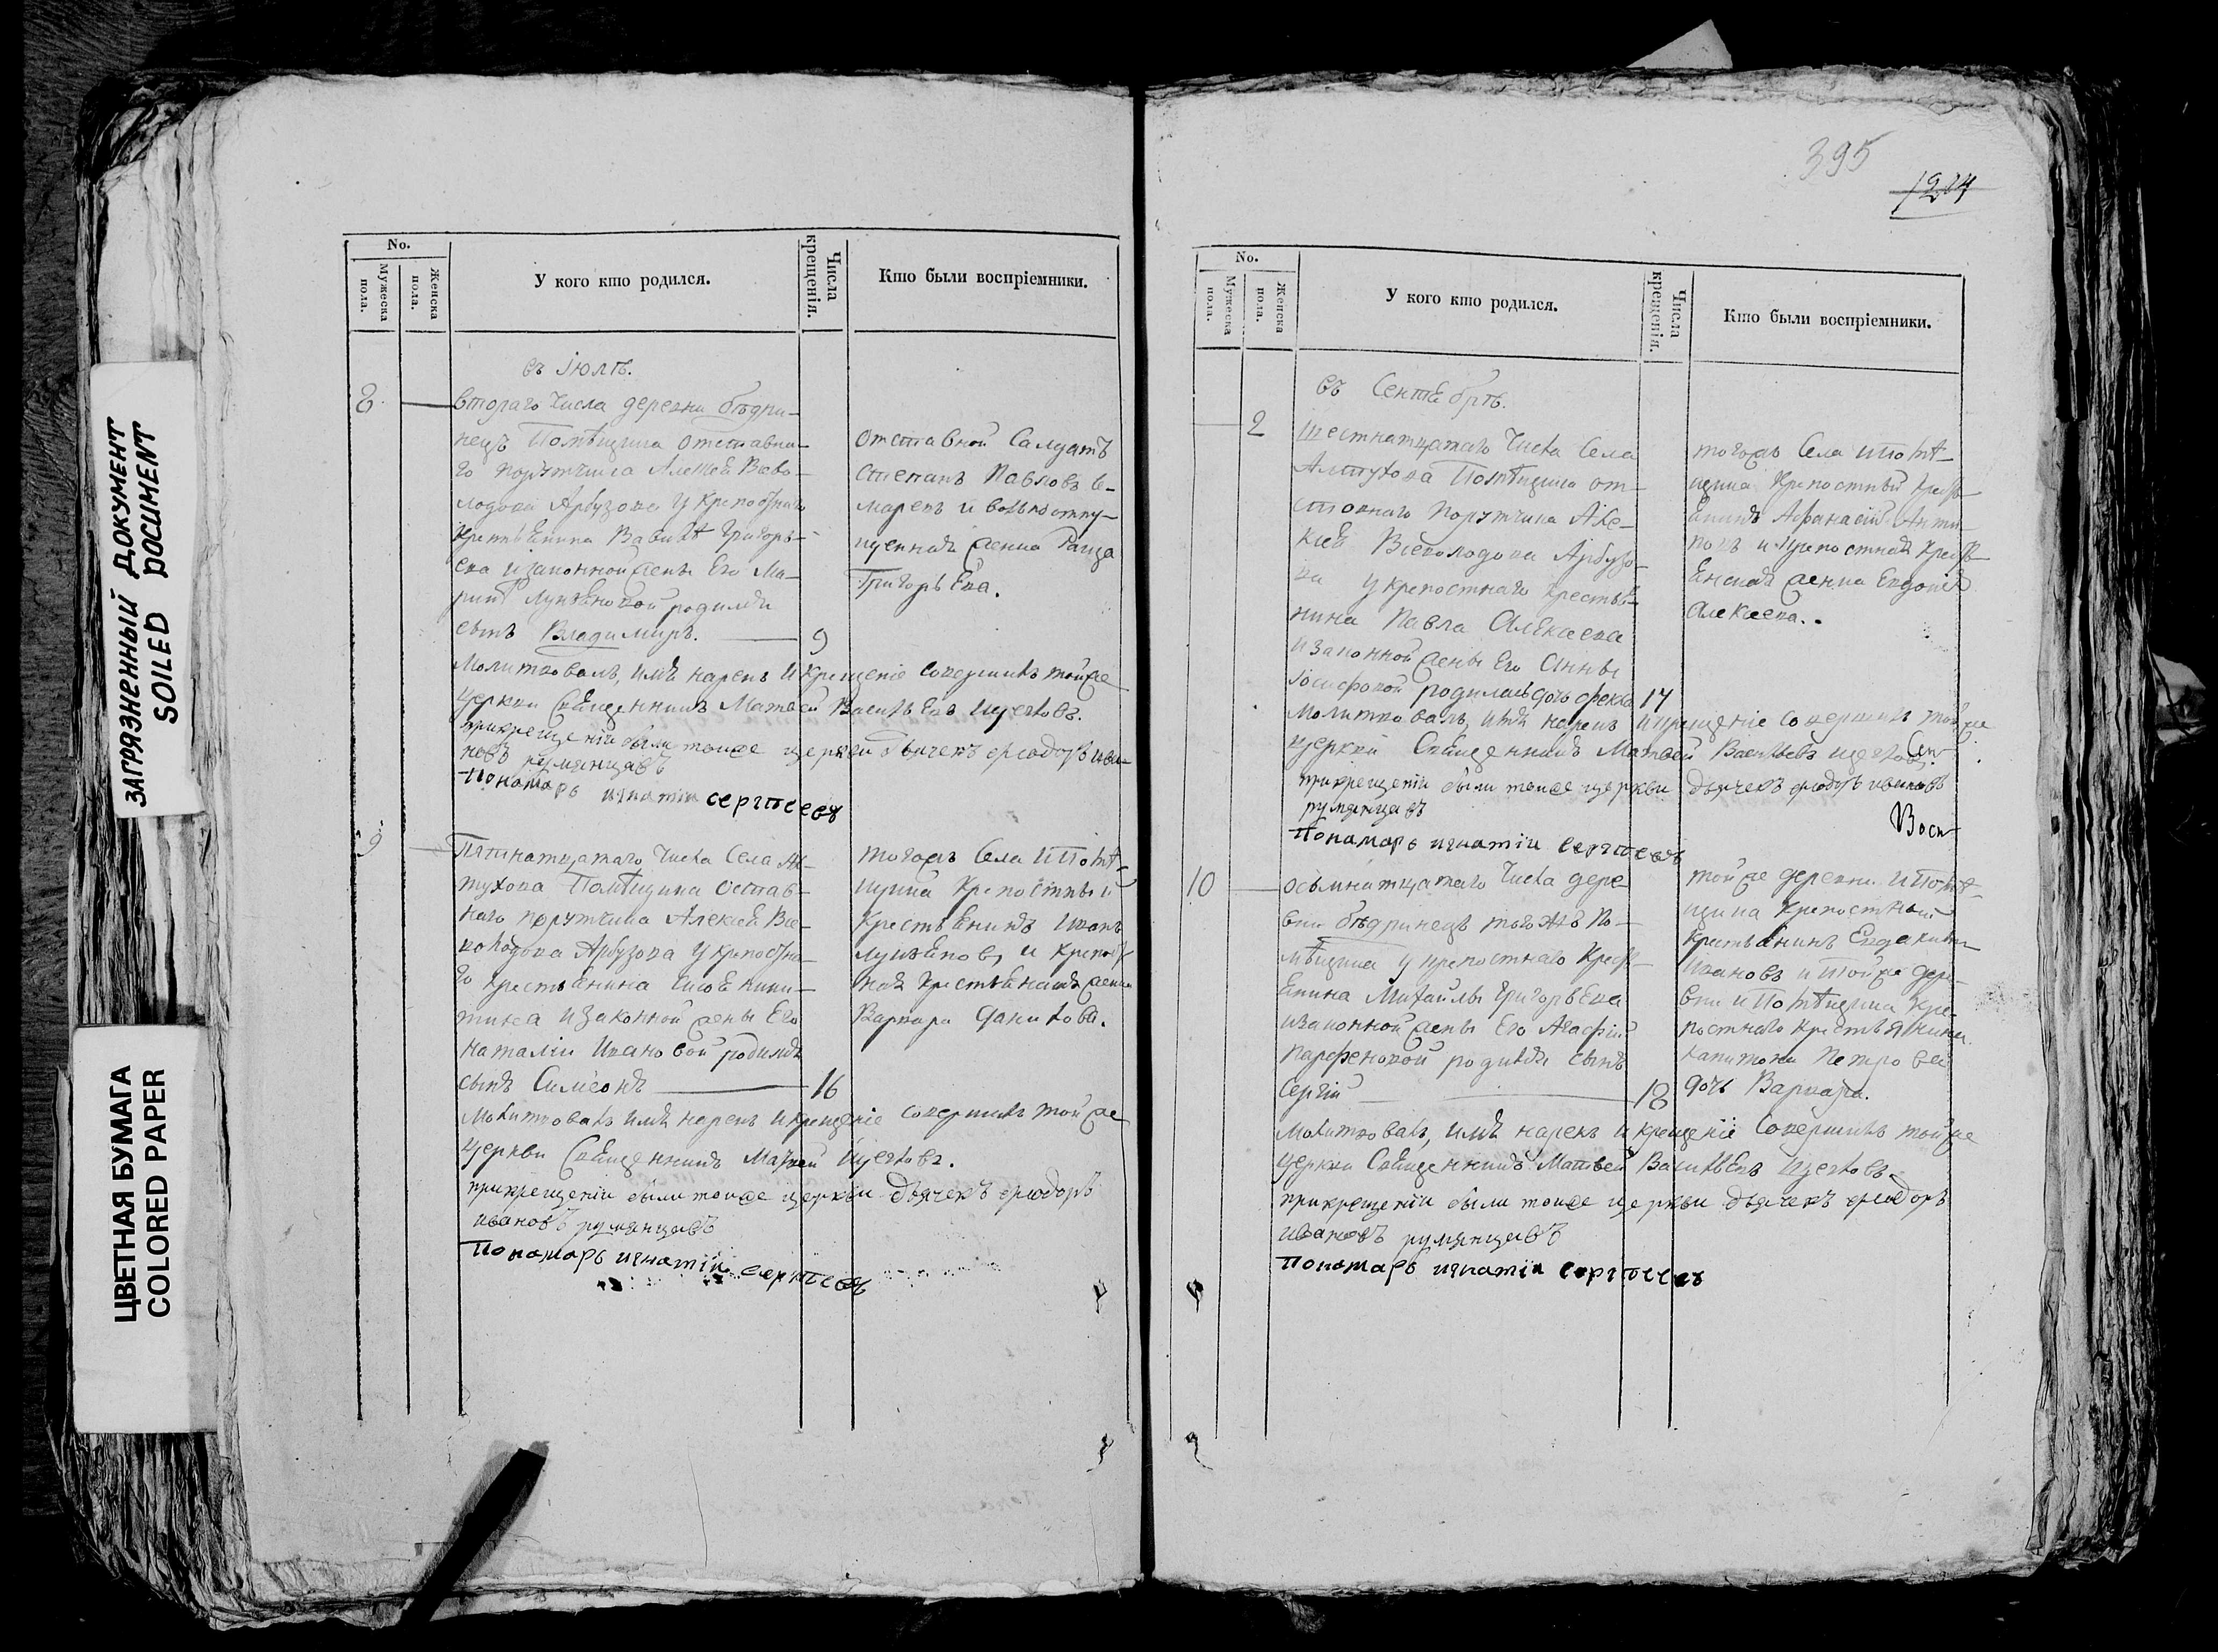 ЗАГРЯЗНЕННЫЙ ДОКУМЕНТ
SOILED DOCUMENT
ЦВЕТНАЯ БУМАГА
COLORED PAPER
No.
Мужеска пола.
Женска пола.
У кого кто родился.
Числа крещенія.
Кто были воспріемники.
въ Іюлѣ.
8
втораго Числа деревни бѣдри-
нецъ Помѣщика отставна-
го порутчика Алексея Всево-
лодова Арбузова У крепостнаго
крестьянина Вавилы Григорь-
ева изаконной жены Его Ма-
рии Лукьяновой родился
сынъ Владимиръ.
9
отставной Салдатъ
Степанъ Павловъ
и вольноотпу-
щенная женка
Григорьева.
Молитвовалъ, имя нарекъ и Крещеніе совершилъ тойже
Церкви Священникъ Матвей Васильевъ Щегловъ.
прикрещеніи были тоиже церкви дьячекъ федоръ ива-
новъ румянцавъ
Пономарь игнатіи сергѣевъ
9
Пятнатцатаго Числа Села Ал-
тухова Помѣщика отстав-
наго порутчика Алексея Все-
володова Арбузова У крепостна-
го крестьянина Ники-
тина изаконной жены Его
наталіи Ивановой родился
сынъ Симеонъ
16
тогожъ Села иПомѣ-
щика Крепостный
Крестьянинъ Иванъ
Лукьяновъ, и крепост-
ная крестьянская женка
Варвара Данилова.
Молитвовалъ имя нарекъ и крещеніе совершилъ тойже
Церкви Священникъ Матвей Щегловъ.
прикрещеніи были тоиже церкви дьячекъ федоръ
ивановъ румянцавъ
Пономарь игнатіи сергѣевъ
395
1204
No.
Мужеска пола.
Женска пола.
У кого кто родился.
Числа крещенія.
Кто были воспріемники.
въ Сентябрѣ.
2
Шестнатцатаго Числа Села
Алтухова Помѣщика от-
ставнаго порутчика Але-
ксея Всеволодова Арбузо-
ва у крепостнаго крестья-
нина Павла Алексеева
изаконной жены Его Анны
Іосифовой родилась дочь фекла
17
тогожъ Села иПомѣ-
щика Крепостный Кресть-
янинъ Афанасій Анти-
повъ и крепостная Кресть-
янская женка Евдокия
Алексеева.
Молитвовалъ, имя нарекъ и крещеніе совершилъ тойже
церкви Священникъ Матвей Васильевъ Щегловъ.
прикрещеніи были тоиже церкви дьячекъ федоръ ивановъ
румянцавъ
Пономарь игнатіи сергѣевъ
10
осьмнатцатаго Числа дере-
вни бѣдринецъ тогожъ По-
мѣщика у крепостнаго Кресть-
янина Михайлы Григорьева
изаконной жены Его Агафіи
Парфеновой родился сынъ
Сергій
18
тойже деревни иПомѣ-
щика крепостный
крестьянинъ
Ивановъ и тойже дере-
вни иПомѣщика кре-
постнаго крестьянина
Капитона Петрова
дочь Варвара.
Молитвовалъ, имя нарекъ и крещеніе Совершилъ тойже
Церкви Священникъ Матвей Васильевъ Щегловъ.
прикрещеніи были тоиже церкви дьячекъ федоръ
ивановъ румянцавъ
Пономарь игнатіи сергѣевъ